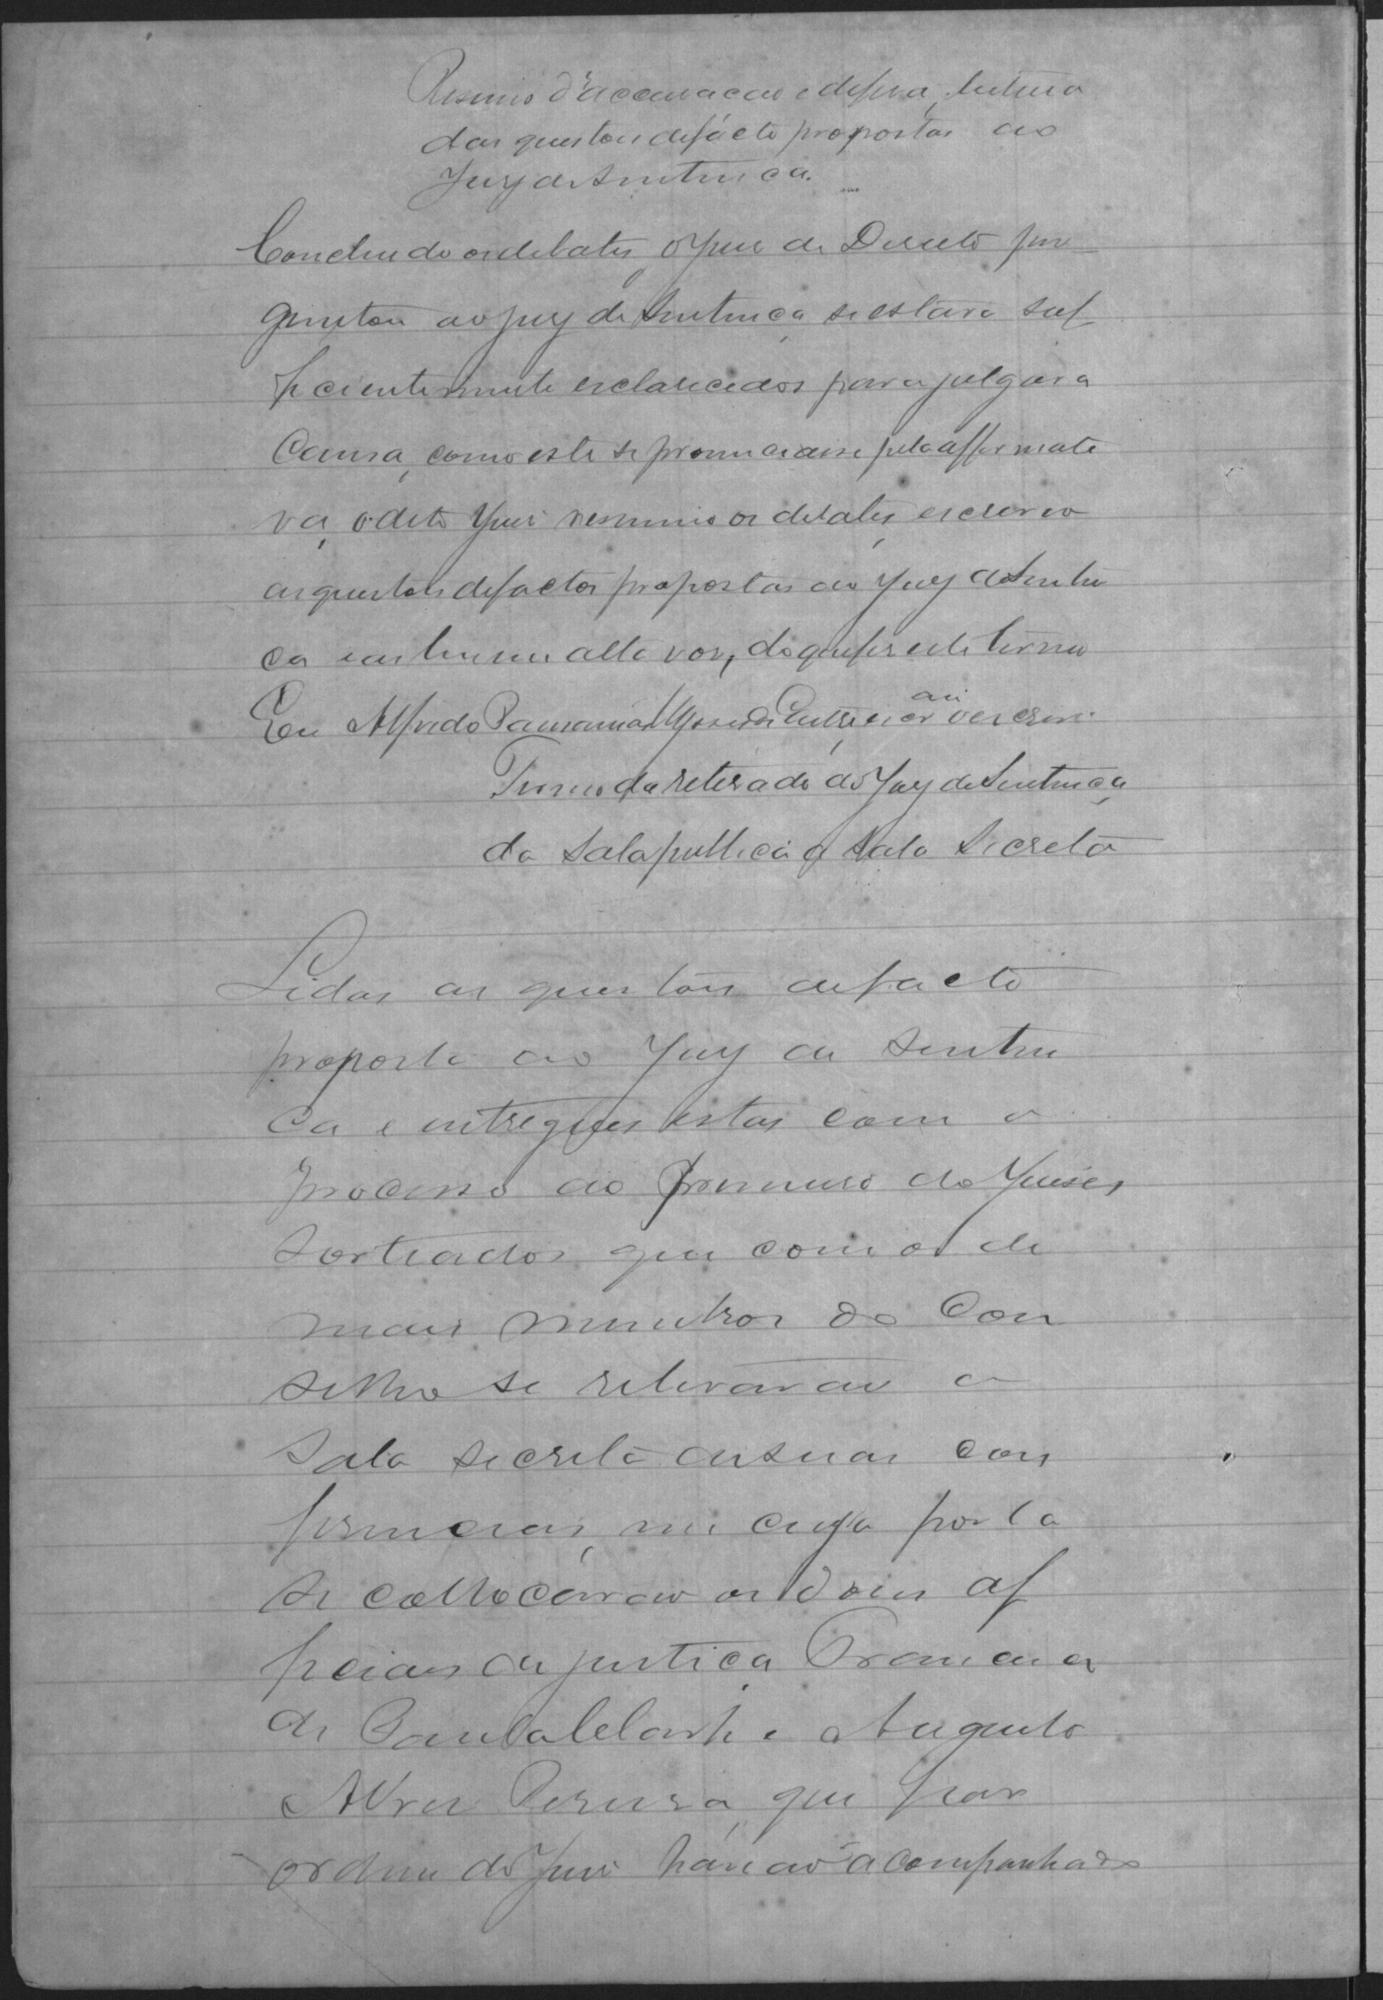 Resumo d'accusação e defesa, leitura
das questões de facto propostas ao
Jury de Sentença.
Concluido os debates, o Juiz de Direito per
guntou ao jury de Sentença se estava suf
ficientemente esclarecidos para julgar a
Causa, como este se pronunciasse pela affirmati
va, o dito Juiz resumio os debates, escreveo
as questões de factos propostas ao Jury de Senten
ça e as leu em alta voz, do que fiz este termo
Eu Alfredo escrivão o escrevi
Termo da retirada do Jury de Sentença
da Sala publica a Sala Secreta
Lidas as questões de facto
proposta ao Jury de Senten
ça e entregues estas com o
processo ao Primeiro do Juises
Sorteados que com os de
mais membros do Con
selho se retirarão a
Sala secreta de suas con
ferencias, em cuja porta
se collocárão os dois of
ficiaes de justiça
de e Augusto
Alves Pereira, que por
ordem do Juiz havião acompanhado